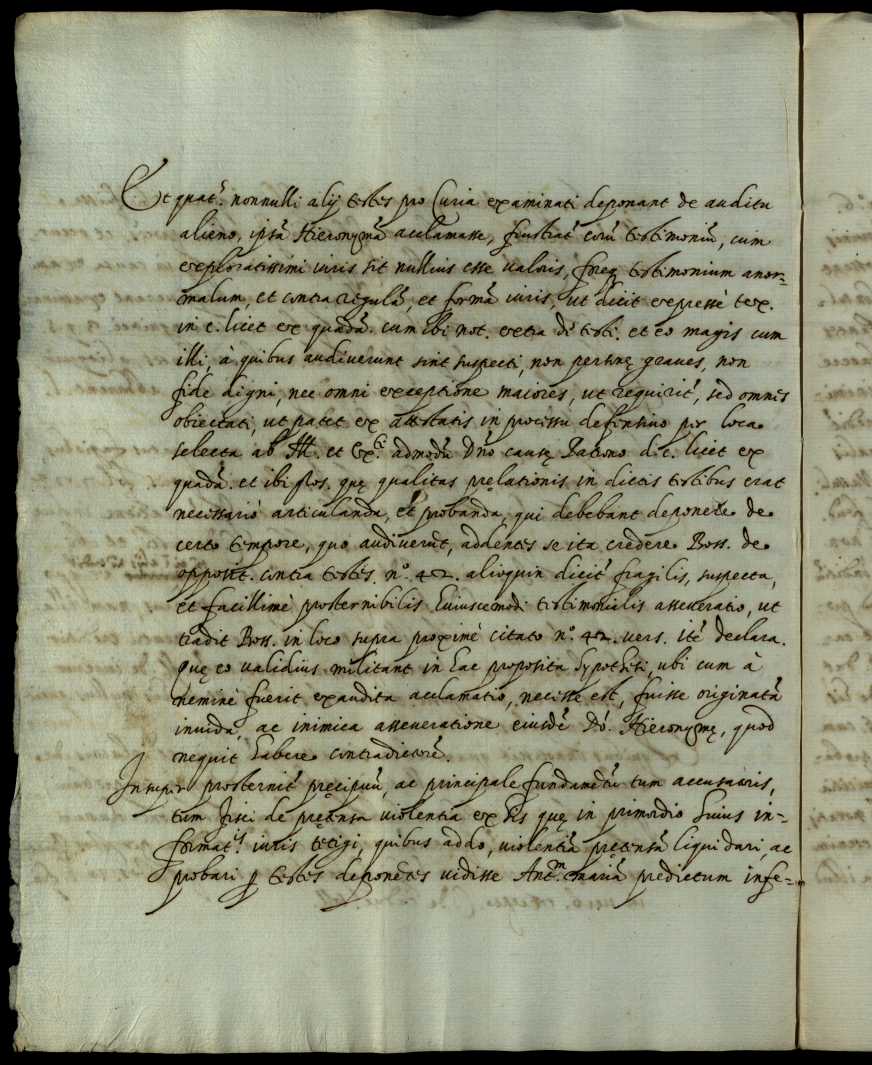 Et quat.s nonnulli alij testes pro Curia examinati deponant de auditu
alieno, ipsã Hieronymã acclamasse, frustrat' eorũ testimoniũ, cum
exploratissimi iuris sit nullius esse valoris, foreq testimonium anor=
malum, et contra regulã, et formã iuris, ut dicit expressè tex.
in c. licet ex quadã. cum ibi not. extra de testi. et eo magis cum
illi, à quibus audiverunt sint suspecti, non personę graves, non
fide digni, nec omni exceptione maiores, ut requirit', sed omnes
obiectati, ut patet ex attestatis in processu defensivo per loca
selecta ab Ill. et Ex. admodũ Dño causę Patrono d. c. licet ex
quadã. et ibi glos. quę qualitas pręlationis in dictis testibus erat
necessariò articulanda, et probanda, qui debebant deponere de
certo tempore, quo audiverũt, addentes se ita credere Boss. de
opposit. contra testes. n.o 42. alioquin dicit' fragilis, suspecta,
et facillimè prosternibilis huiuscemodi testimonialis asseveratio, ut
tradit Boss. in loco supra proximè citato n.o 42. vers. itẽ declara.
quę eo validius militant in hac proposita hypothesi, ubi cum à
neminè fuerit exaudita acclamatio, necesse est, fuisse originatã
invida, ac inimica asseveratione eiusdẽ Dõ. Hieronymę, quod
nequit habere contradictorẽ.
Insuper prosternit' pręcipuũ, ac principale fundamẽtũ tum accusatoris,
tum fisci de pręt̃ensa violentia ex his quę in primordio huius in=
format.s iuris tetigi, quibus addo, violentiã pręt̃ensã liquidari, ac
probari p testes deponẽtes vidisse Ant.m mariã predictum infe=